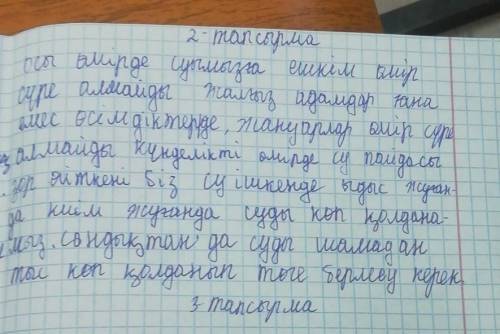 2-тапсырма
осы өмірде сусымызға ешкім өмір
сүре алмайды жалғыз адамдар ғана
емес өсімдіктерде, жануарлар өмір сүре
алмайды күнделікті өмірде су пайдасы
зор өйткені біз су ішкенде ыдыс жуған-
да киім жуғанда суды көп қолдана-
мыз. сондықтан да суды шамадан
тыс көп қолданып төге бермеу керек.
3-тапсырма